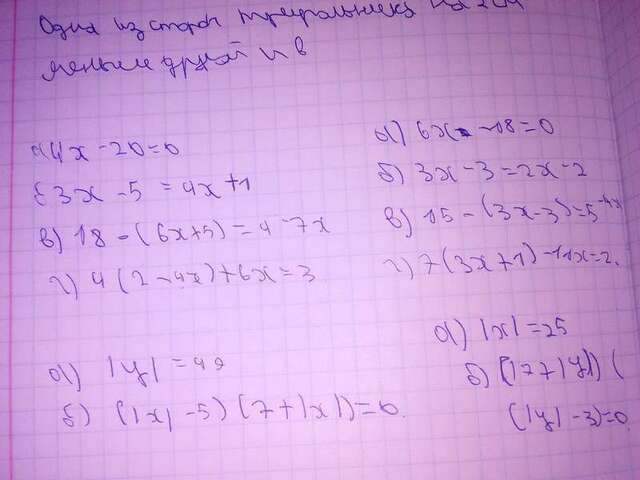 Одна из сторон треугольника на
меньше другой и в
а) 4x - 20 = 0
б) 3x - 5 = 4x + 1
в) 18 - (6x + 5) = 4 - 7x
г) 4 (2 - 4x) + 6x = 3
а) 6x - 18 = 0
б) 3x - 3 = 2x - 2
в) 15 - (3x - 3) = 5 - 4x
г) 7 (3x + 1) - 11x = 2.
а) |y| = 49
б) (|x| - 5) (7 + |x|) = 0.
а) |x| = 25
б) (17 + |y|) (
(|y| - 3) = 0